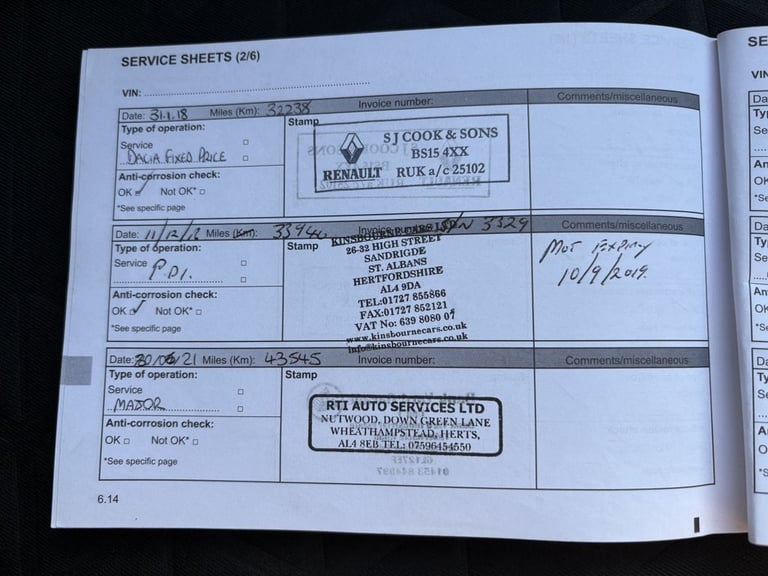 SERVICE SHEETS (2/6)
VIN:
Date: 31.1.18 Miles (Km): 32238 Invoice number: Comments/miscellaneous
Type of operation:
Service
DACIA FIXED PRICE
Anti-corrosion check:
OK Not OK*
*See specific page
Stamp
RENAULT
SJ COOK & SONS
BS15 4XX
RUK a/c 25102
Date: Miles (Km): Invoice number: 3329 Comments/miscellaneous
Type of operation:
Service
P.D.I.
Anti-corrosion check:
OK Not OK*
*See specific page
Stamp
KINSBOURNE CARS LTD
26-32 HIGH STREET
SANDRIGDE
ST. ALBANS
HERTFORDSHIRE
AL4 9DA
TEL:01727 855866
FAX:01727 852121
VAT No: 639 8080 07
www.kinsbournecars.co.uk
info@kinsbournecars.co.uk
MOT EXPIRY
10/9/2019
Date: 30/06/21 Miles (Km): 43545 Invoice number: Comments/miscellaneous
Type of operation:
Service
MAJOR
Anti-corrosion check:
OK Not OK*
*See specific page
Stamp
RTI AUTO SERVICES LTD
NUTWOOD, DOWN GREEN LANE
WHEATHAMPSTEAD, HERTS,
AL4 8EB TEL: 07596454550
6.14